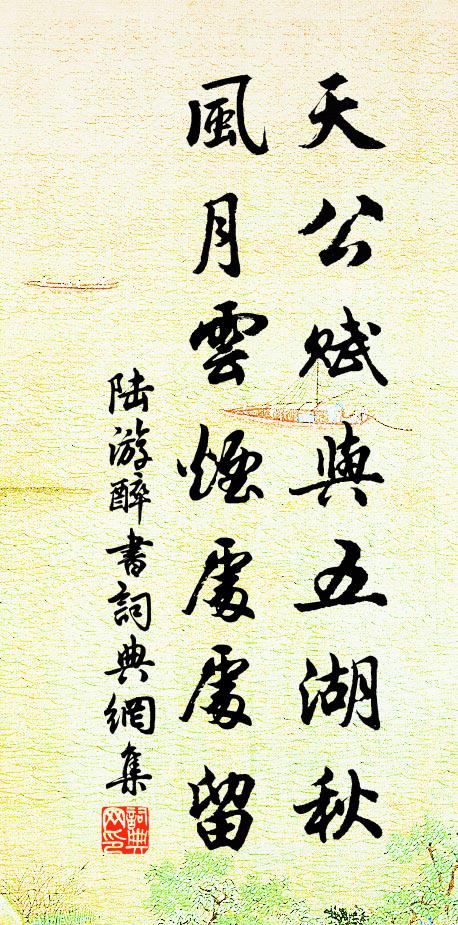 天公賦與五湖秋
風月雲煙處處留
陸游醉書詞典網集
詞典网印